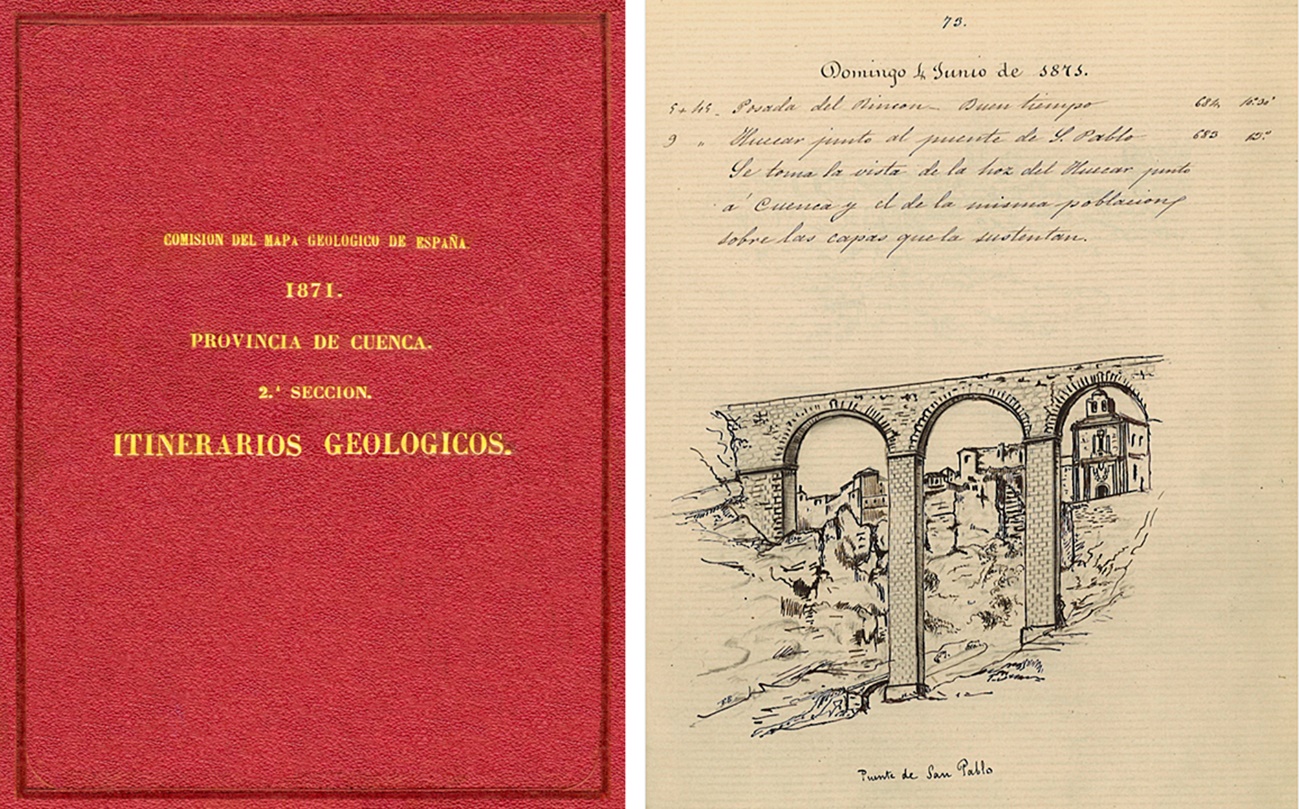 COMISION DEL MAPA GEOLOGICO DE ESPAÑA.
1871.
PROVINCIA DE CUENCA.
2.ª SECCION.
ITINERARIOS GEOLOGICOS.
73.
Domingo 4 Junio de 1871.
5 + 45 Posada del Rincon Buen tiempo 684
9 " Huecar junto al puente de S. Pablo 683
Se toma la vista de la hoz del Huecar junto
á Cuenca y el de la misma poblacion
sobre las capas que la sustentan.
Puente de San Pablo